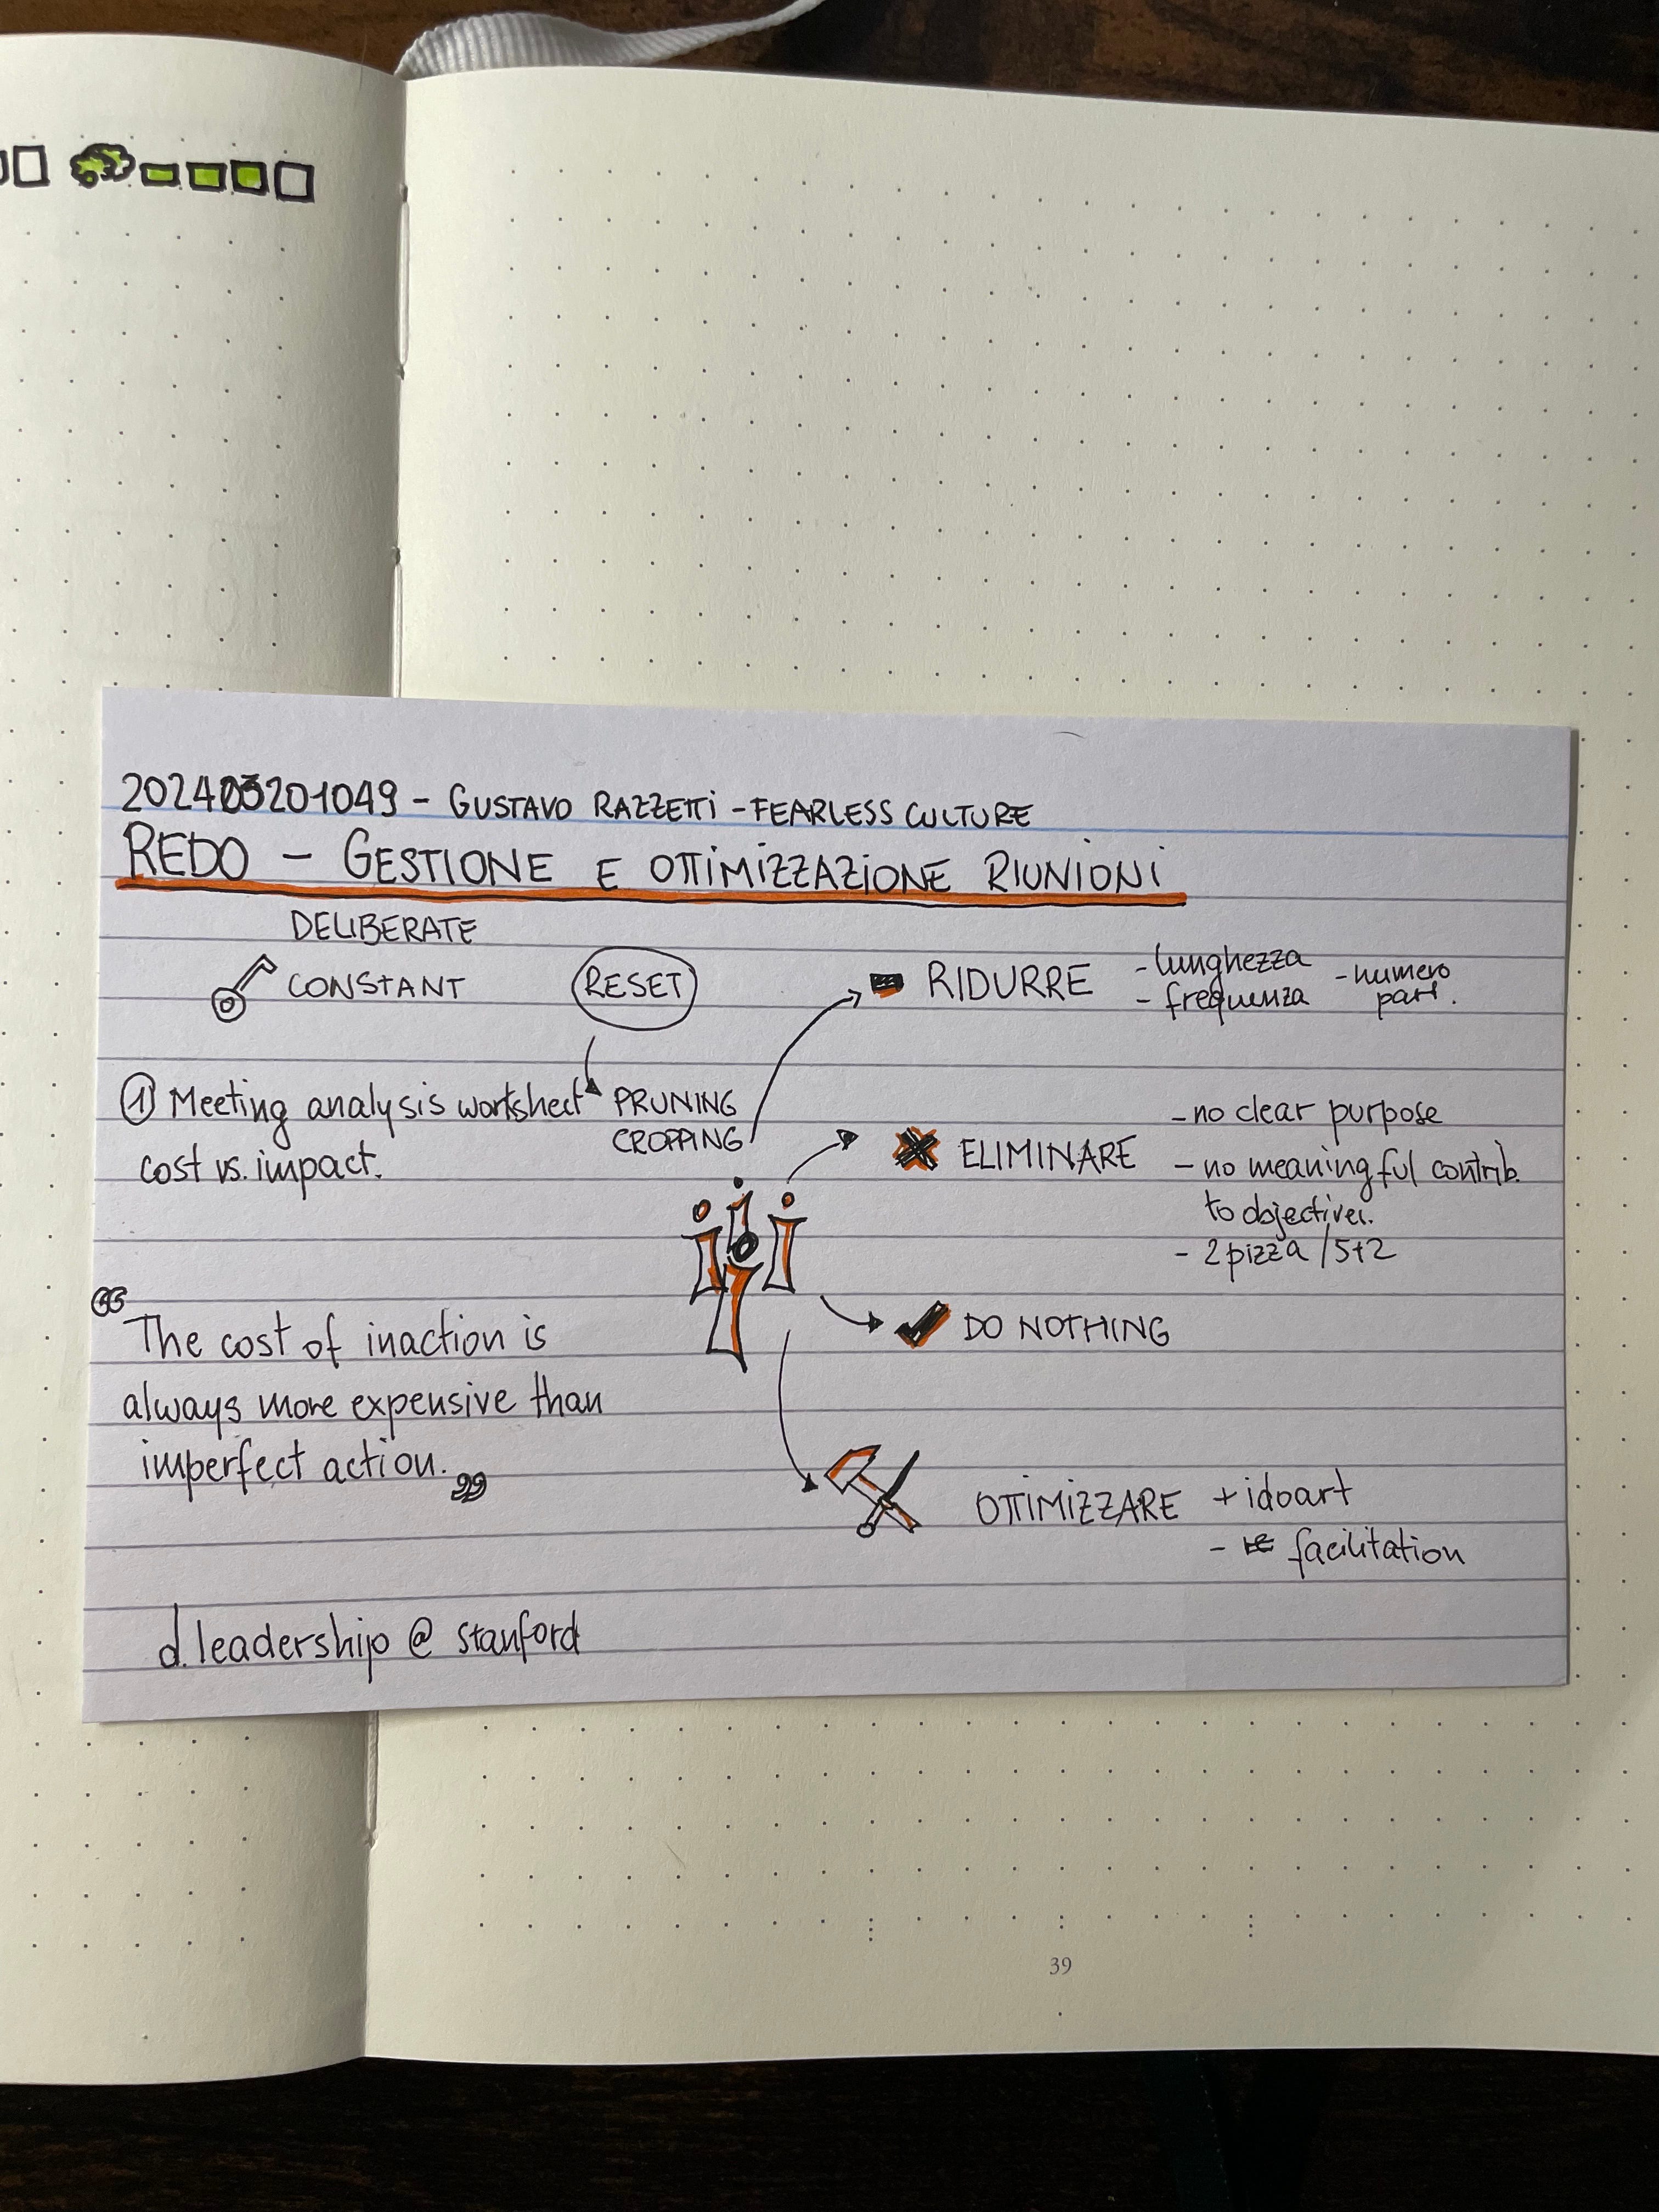 202403201049 - GUSTAVO RAZZETTI - FEARLESS CULTURE
REDO - GESTIONE E OTTIMIZZAZIONE RIUNIONI
DELIBERATE
CONSTANT
RESET
RIDURRE
- lunghezza
- frequenza
- numero
part.
① Meeting analysis worksheet
cost vs. impact.
PRUNING
CROPPING
ELIMINARE
- no clear purpose
- no meaningful contrib.
to objectives.
- 2 pizza / 5+2
DO NOTHING
“The cost of inaction is
always more expensive than
imperfect action.”
OTTIMIZZARE
+ idoart
- facilitation
d.leadership @ stanford
39